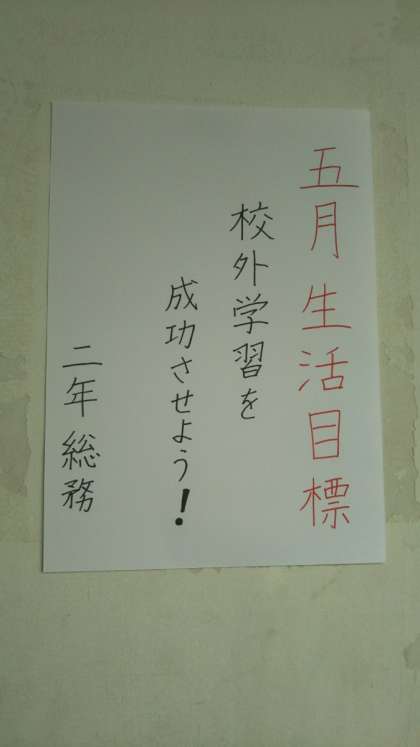 五月生活目標
校外学習を
成功させよう!
二年総務